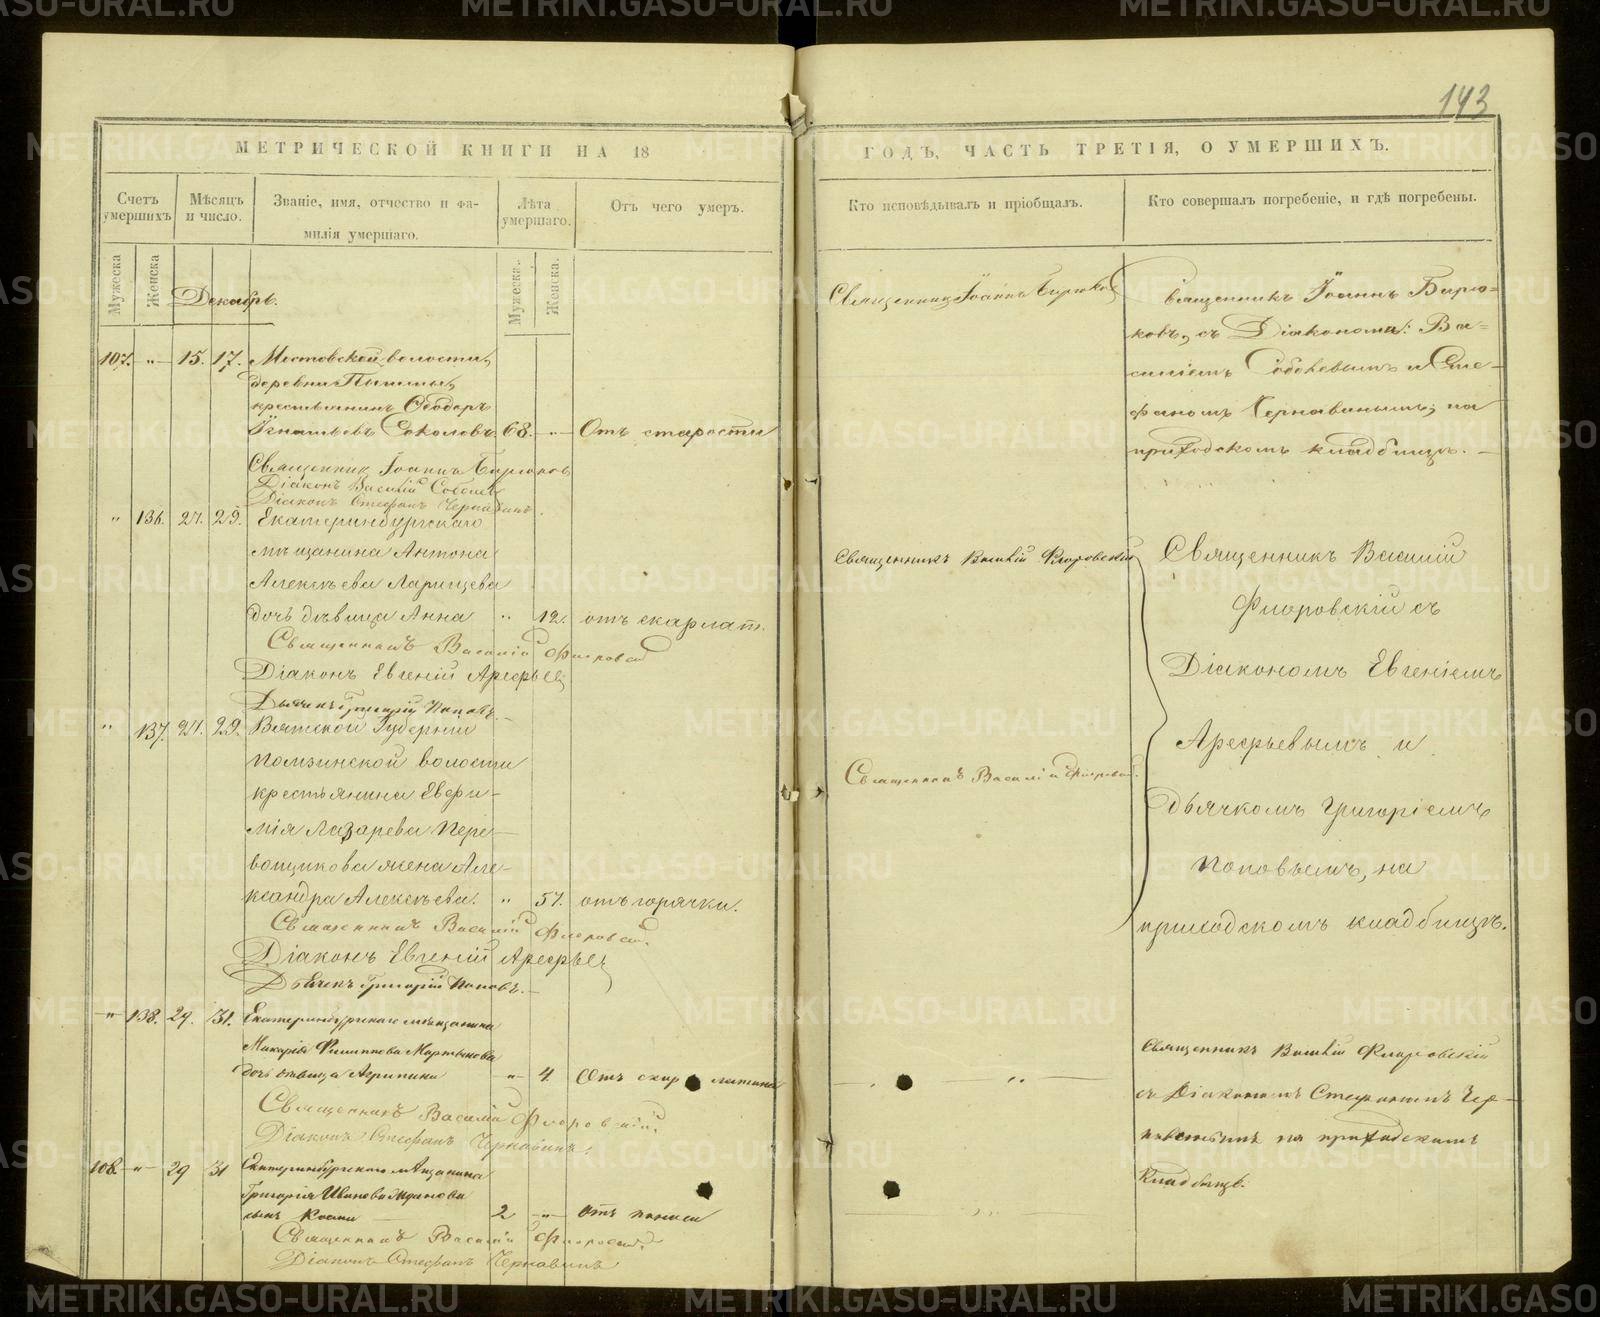 143
МЕТРИЧЕСКОЙ КНИГИ НА 18
ГОДЪ, ЧАСТЬ ТРЕТІЯ, О УМЕРШИХЪ.
Счетъ умершихъ
Мѣсяцъ и число.
Званіе, имя, отчество и фа-
милія умершаго.
Лѣта умершаго.
Отъ чего умеръ.
Кто исповѣдывалъ и пріобщалъ.
Кто совершалъ погребеніе, и гдѣ погребены.
Мужеска
Женска
Мужеска.
Женска.
Декабрь.
107. -"- 15. 17. Мостовской волости,
деревни Пышмы,
крестьянинъ Ѳеодоръ
Игнатьевъ Соколовъ. 68. -"- Отъ старости
Священник Іоаннъ Бирюков
Діаконъ Василій Соболев
Діаконъ Стефанъ Чернавинъ.
Священник Іоаннъ Бирюков
Священникъ Іоаннъ Бирю=
ковъ, съ Діаконами: Ва=
силіемъ Соболевымъ и Сте-
фаномъ Чернавинымъ; на
приходскомъ кладбищѣ. -
" 136. 27. 29. Екатеринбургскаго
мѣщанина Антона
Алексѣева Ларинцева
дочь дѣвица Анна " 12. отъ скарлат.
Священникъ Василій Флоровскій
Діаконъ Евгеній Арефьев
Дьячекъ Григорій Поповъ.
Священникъ Василій Флоровскій
" 137. 27. 29. Вятской Губерніи
крестьянина Евфи-
мія Лазарева Пере-
вощикова жена Але-
ксандра Алексѣева. " 57. отъ горячки.
Священникъ Василій Флоровскій.
Діаконъ Евгеній Арефьев
Дьячекъ Григорій Поповъ.
Священникъ Василій Флоровскій.
Священникъ Василій
Флоровскій съ
Діакономъ Евгеніемъ
Арефьевымъ и
дьячкомъ Григоріемъ
Поповымъ, на
приходскомъ кладбищѣ.
-"- 138. 29. 31. Екатеринбургскаго мѣщанина
Макарія Филиппова Мартынова
дочь дѣвица Агрипина -"- 4. Отъ скарлатина
Священникъ Василій Флоровскій.
Діаконъ Стефанъ Чернавинъ.
108. -"- 29 31 Екатеринбургскаго мѣщанина
Григорія Иванова
сынъ 2 -"- Отъ поноса
Священникъ Василій Флоровскій.
Діаконъ Стефанъ Чернавинъ
Священникъ Василій Флоровскій
съ Діакономъ Стефаномъ Чер-
навинымъ на приходскомъ
Кладбищѣ.
METRIKI.GASO-URAL.RU